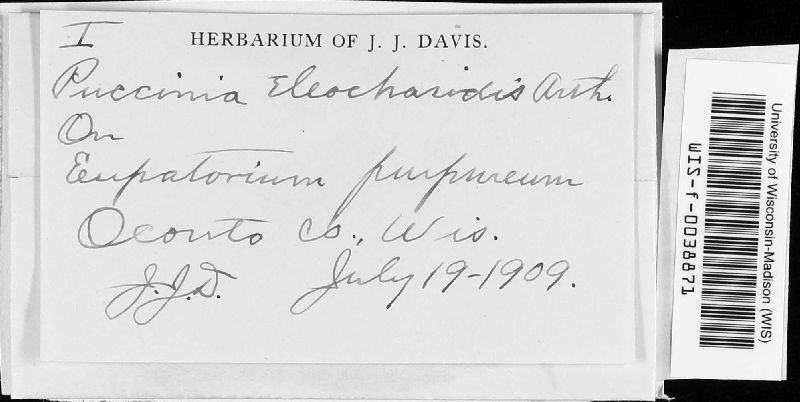 I
HERBARIUM OF J. J. DAVIS.
Puccinia Eleocharidis Arth.
On
Eupatorium purpureum
Oconto Co., Wis.
J.J.D. July 19-1909.
University of Wisconsin-Madison (WIS)
WIS-f-0038871